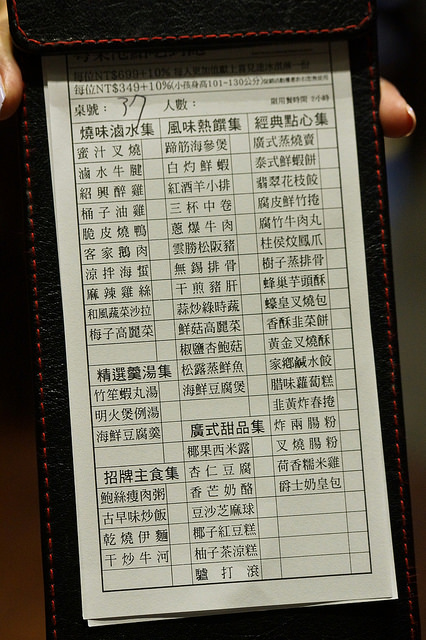 每位NT$699+10%
每位NT$349+10%(小孩身高101~130公分)
桌號： 37 人數： 限用餐時間 2小時
燒味滷水集
蜜汁叉燒
滷水牛腱
紹興醉雞
桶子油雞
脆皮燒鴨
客家鵝肉
涼拌海蜇
麻辣雞絲
和風蔬菜沙拉
梅子高麗菜
精選羹湯集
竹笙蝦丸湯
明火煲例湯
海鮮豆腐羹
招牌主食集
鮑絲瘦肉粥
古早味炒飯
乾燒伊麵
干炒牛河
風味熱饌集
蹄筋海參煲
白灼鮮蝦
紅酒羊小排
三杯中卷
蔥爆牛肉
雲勝松阪豬
無錫排骨
干煎豬肝
蒜炒綠時蔬
鮮菇高麗菜
椒鹽杏鮑菇
松露蒸鮮魚
海鮮豆腐煲
廣式甜品集
椰果西米露
杏仁豆腐
香芒奶酪
豆沙芝麻球
椰子紅豆糕
柚子茶涼糕
驢打滾
經典點心集
廣式蒸燒賣
泰式鮮蝦餅
翡翠花枝餃
腐皮鮮竹捲
腐竹牛肉丸
柱侯炆鳳爪
樹子蒸排骨
蜂巢芋頭酥
蠔皇叉燒包
香酥韭菜餅
黃金叉燒酥
家鄉鹹水餃
腊味蘿蔔糕
韭黃炸春捲
炸兩腸粉
叉燒腸粉
荷香糯米雞
爵士奶皇包